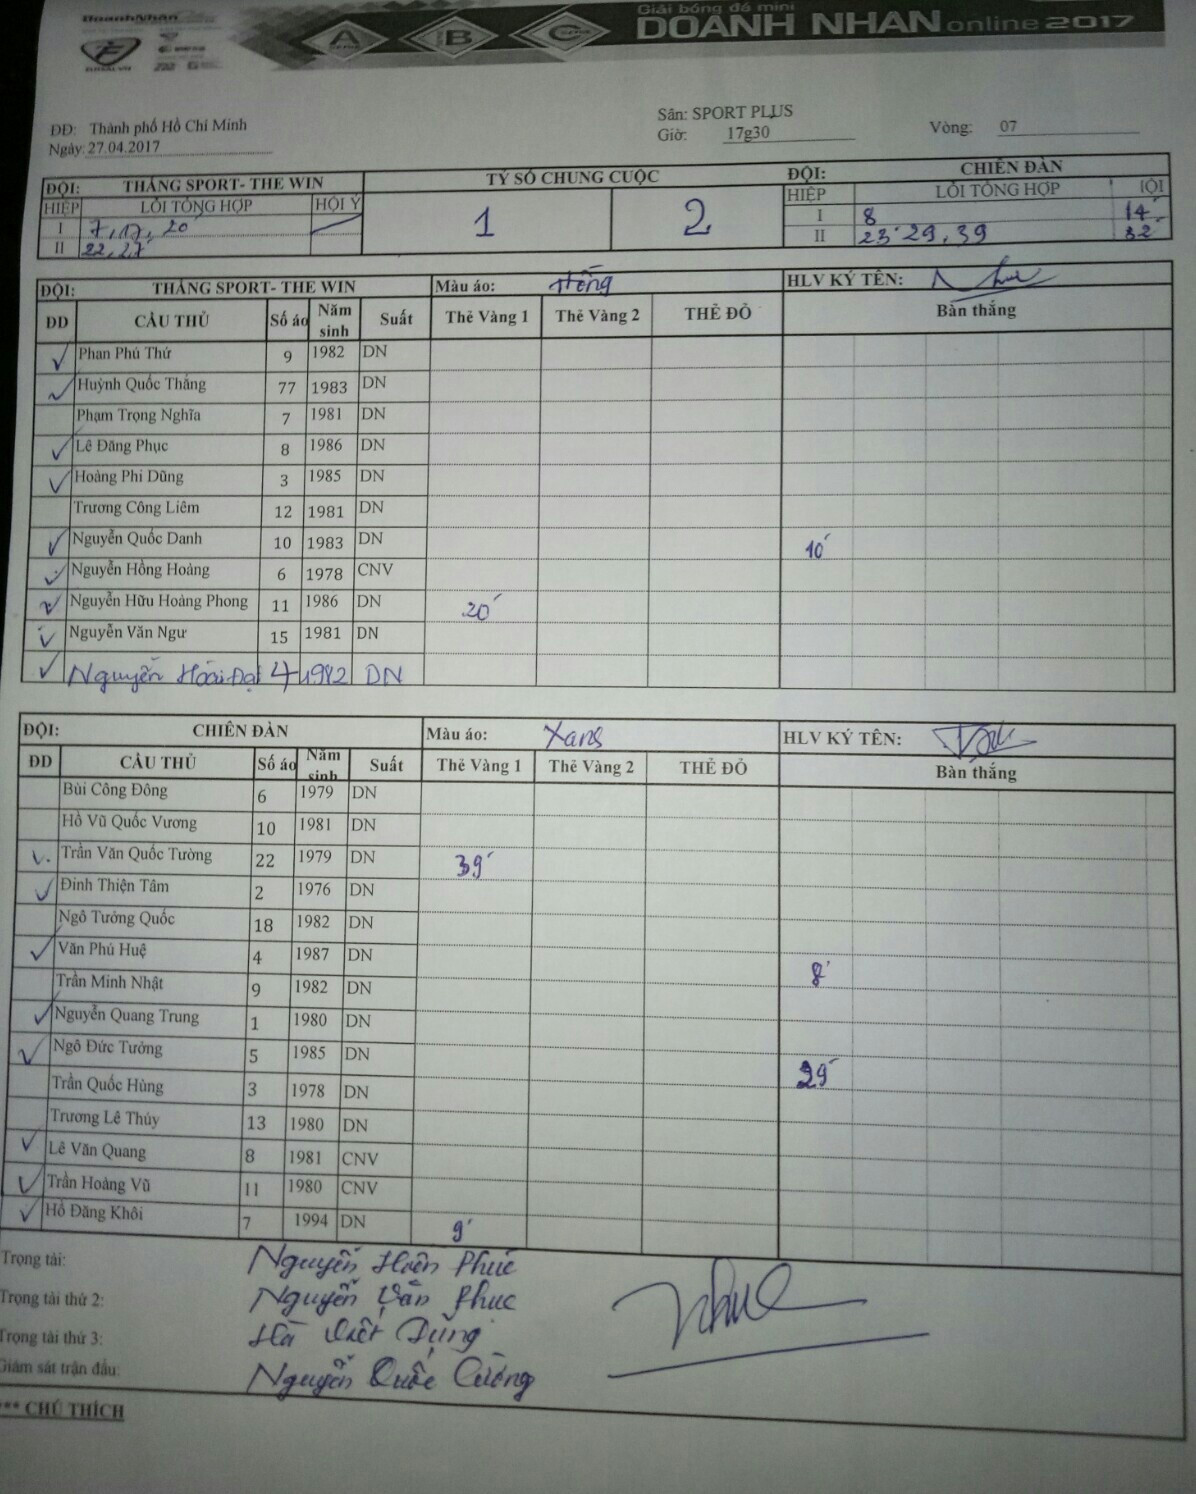 DoanhNhân
Giải bóng đá mini
DOANH NHAN online 2017
A B C
ĐĐ: Thành phố Hồ Chí Minh
Ngày: 27.04.2017
Sân: SPORT PLUS
Giờ: 17g30
Vòng: 07
ĐỘI: THẮNG SPORT- THE WIN TỶ SỐ CHUNG CUỘC ĐỘI: CHIÊN ĐÀN
HIỆP LỖI TỔNG HỢP HỘI Ý 1 2 HIỆP LỖI TỔNG HỢP
I 7, 17, 20 I 8 14
II 22, 27 II 23 29, 39 32
ĐỘI: THẮNG SPORT- THE WIN Màu áo: Hồng HLV KÝ TÊN:
DD CẦU THỦ Số áo Năm sinh Suất Thẻ Vàng 1 Thẻ Vàng 2 THẺ ĐỎ Bàn thắng
Phan Phú Thứ 9 1982 DN
Huỳnh Quốc Thắng 77 1983 DN
Phạm Trọng Nghĩa 7 1981 DN
Lê Đăng Phục 8 1986 DN
Hoàng Phi Dũng 3 1985 DN
Trương Công Liêm 12 1981 DN
Nguyễn Quốc Danh 10 1983 DN 10'
Nguyễn Hồng Hoàng 6 1978 CNV
Nguyễn Hữu Hoàng Phong 11 1986 DN 20'
Nguyễn Văn Ngư 15 1981 DN
Nguyễn Hoài Đại 4 1982 DN
ĐỘI: CHIÊN ĐÀN Màu áo: Xang HLV KÝ TÊN:
ĐD CẦU THỦ Số áo Năm sinh Suất Thẻ Vàng 1 Thẻ Vàng 2 THẺ ĐỎ Bàn thắng
Bùi Công Đông 6 1979 DN
Hồ Vũ Quốc Vương 10 1981 DN
Trần Văn Quốc Tường 22 1979 DN 39'
Đinh Thiện Tâm 2 1976 DN
Ngô Tưởng Quốc 18 1982 DN
Văn Phú Huệ 4 1987 DN 8'
Trần Minh Nhật 9 1982 DN
Nguyễn Quang Trung 1 1980 DN
Ngô Đức Tưởng 5 1985 DN 29'
Trần Quốc Hùng 3 1978 DN
Trương Lê Thủy 13 1980 DN
Lê Văn Quang 8 1981 CNV
Trần Hoàng Vũ 11 1980 CNV
Hồ Đăng Khôi 7 1994 DN 9'
Trọng tài: Nguyễn Hiền Phúc
Trọng tài thứ 2: Nguyễn Văn Phúc
Trọng tài thứ 3: Hà Việt Dũng
Giám sát trận đấu: Nguyễn Quốc Cường
*** CHÚ THÍCH